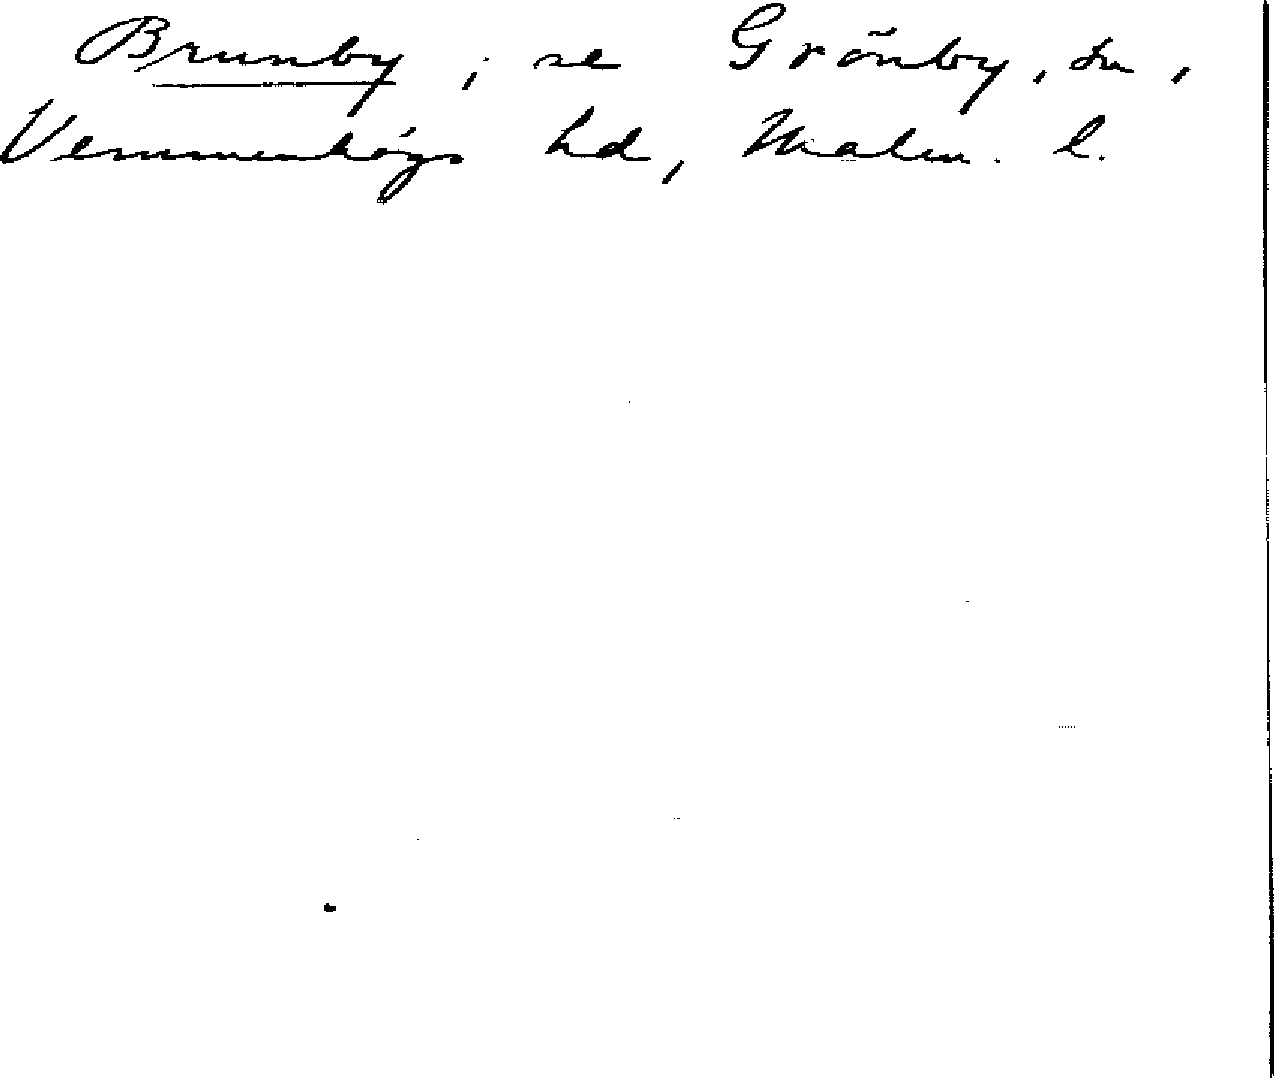 Brunby, se Grönby, sn,
Vemmenhögs hd, Malm. l.